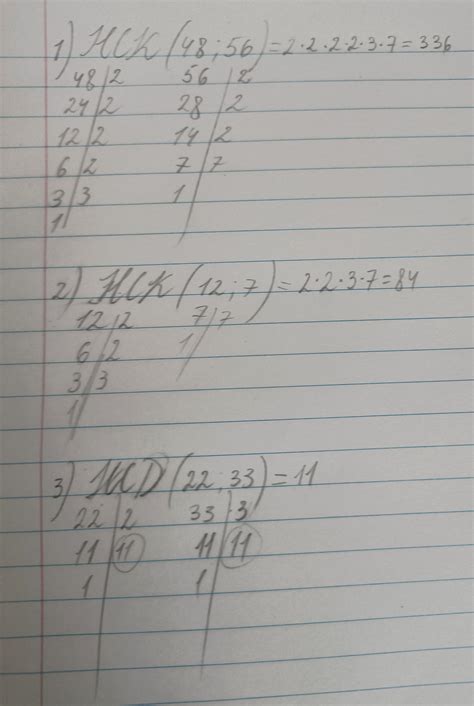 1) НСК (48; 56) = 2·2·2·2·3·7 = 336
48 | 2 56 | 2
24 | 2 28 | 2
12 | 2 14 | 2
6 | 2 7 | 7
3 | 3 1
1
2) НСК (12; 7) = 2·2·3·7 = 84
12 | 2 7 | 7
6 | 2 1
3 | 3
1
3) НСD (22; 33) = 11
22 | 2 33 | 3
11 | 11 11 | 11
1 1